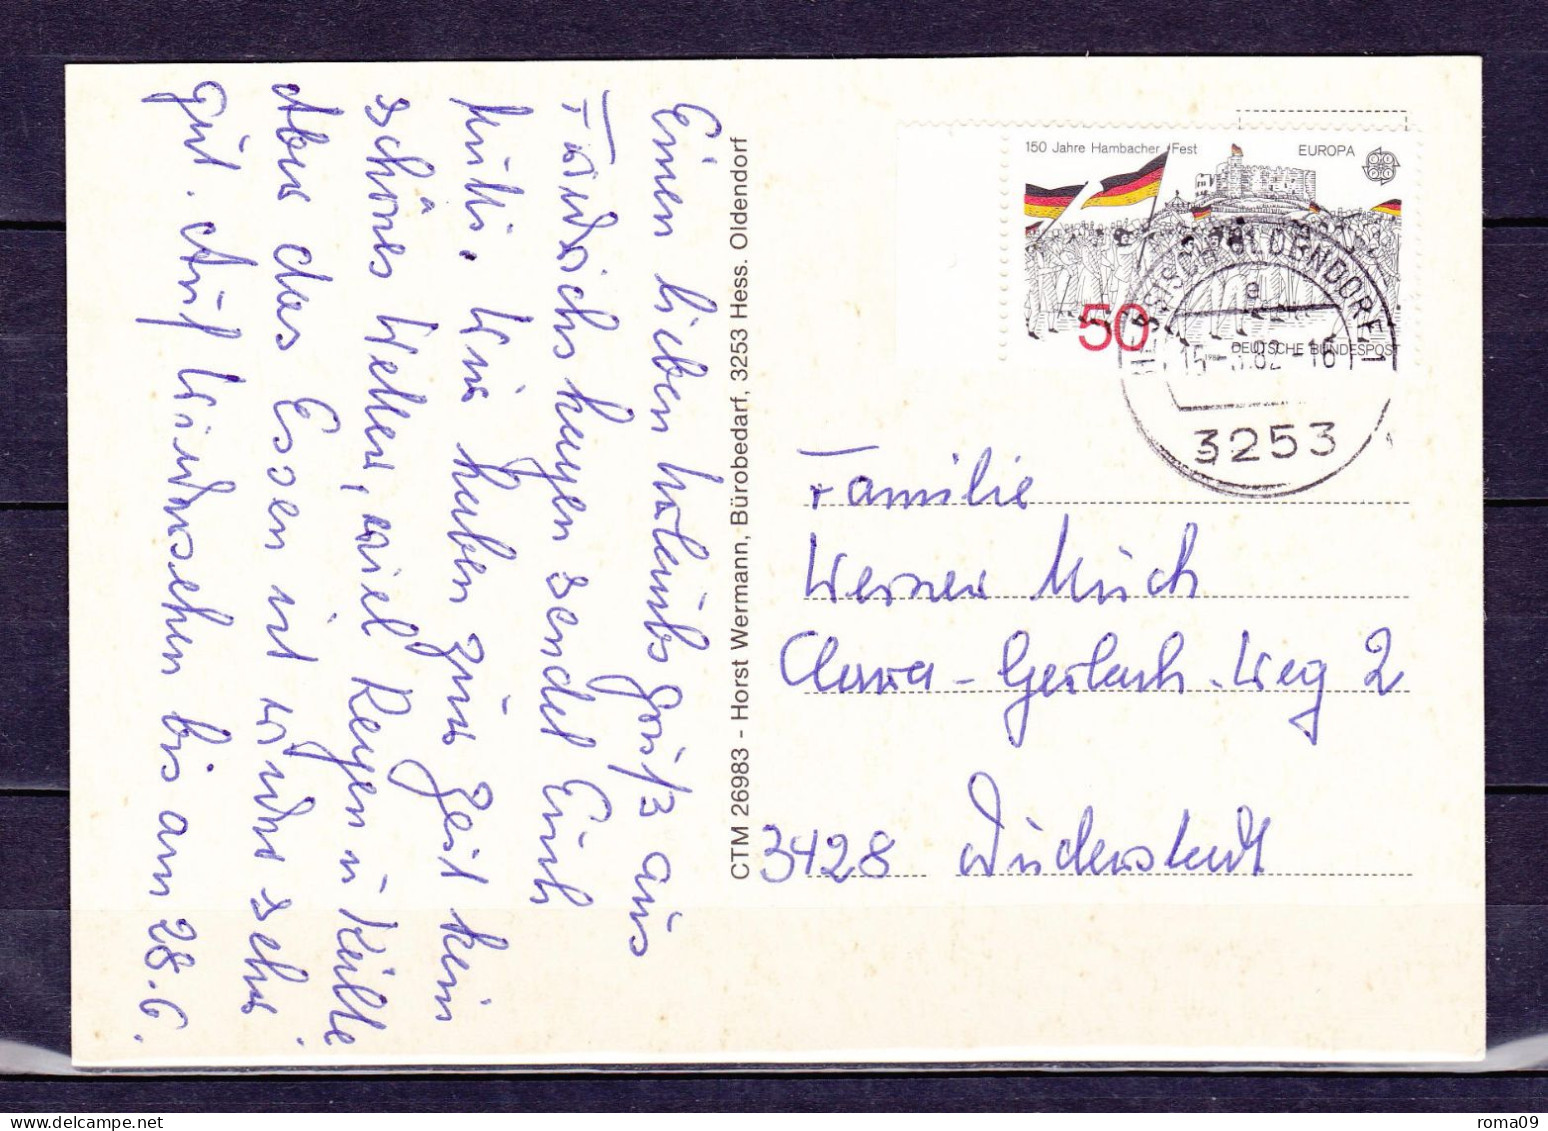 Einen lieben Urlaubsgruß aus
Friedrichshagen sendet Euch
Mutti. Wir haben zur Zeit kein
schönes Wetter, viel Regen u Kälte
Aber das Essen ist wieder sehr
gut. Auf Wiedersehen bis am 28.6.
CTM 26983 - Horst Wermann, Bürobedarf, 3253 Hess. Oldendorf
150 Jahre Hambacher Fest
EUROPA
50
DEUTSCHE BUNDESPOST
HESSISCH OLDENDORF 1
e
3253
Familie
Werner Much
Clara-Gerlach-Weg 2
3428 Duderstadt
roma09